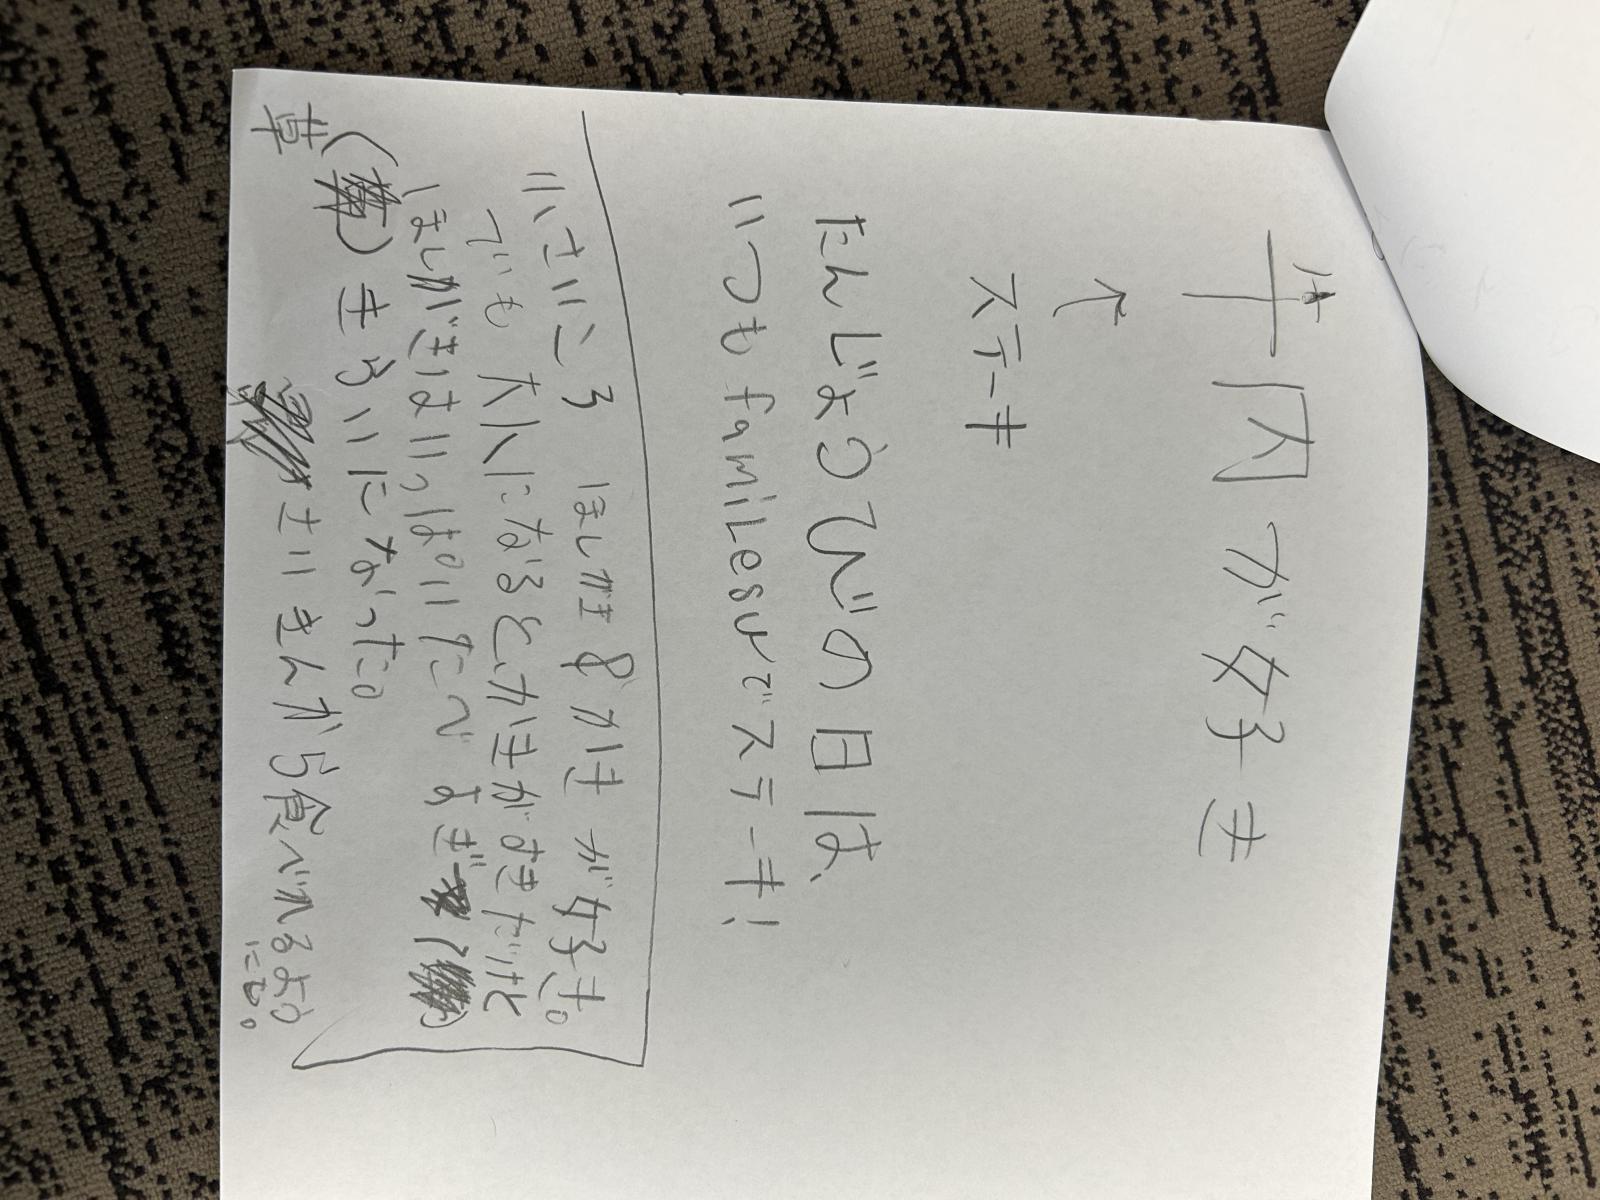 牛肉が好き
↑
ステーキ
たんじょうびの日は、
いつもfamilesuでステーキ!
小さいころ ほしがきとかきが好き。
でも大人になるとかきがすきだけど
ほしがきはいっぱいたべすぎ
きらいになった。
さいきんから食べれるよう
にも。
草